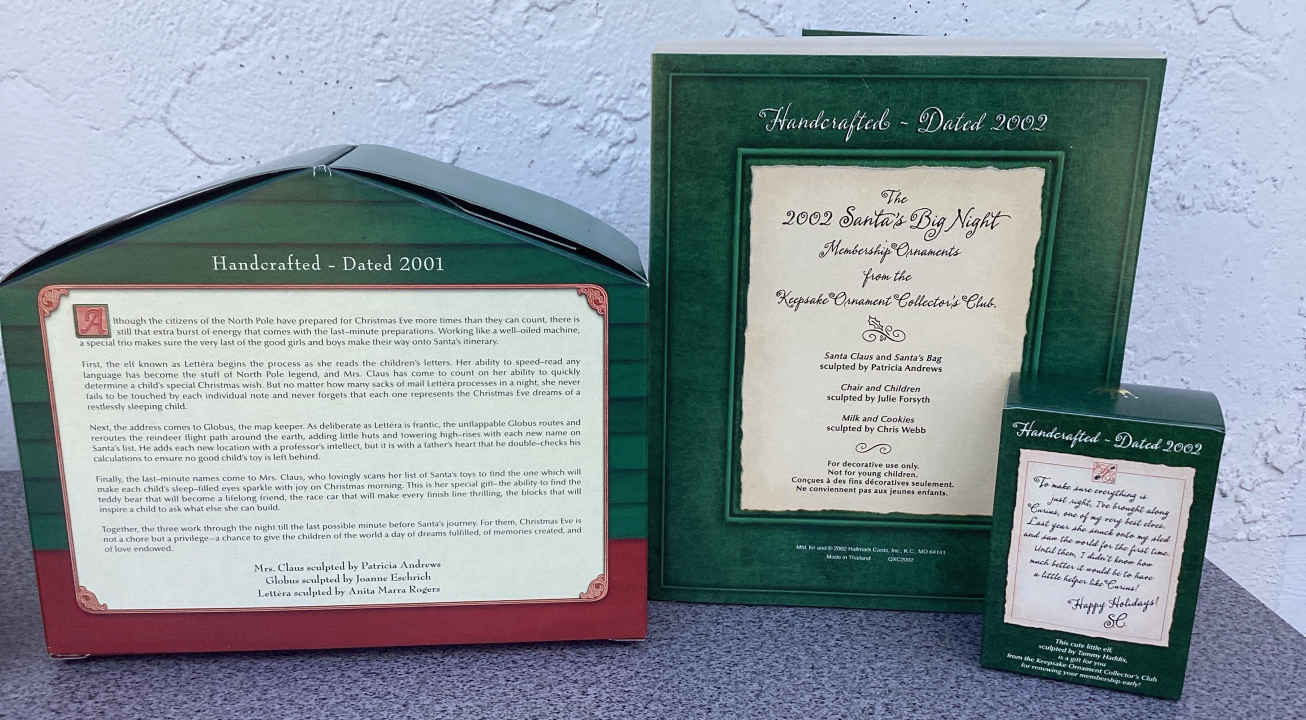 Handcrafted - Dated 2001
Although the citizens of the North Pole have prepared for Christmas Eve more times than they can count, there is
still that extra burst of energy that comes with the last-minute preparations. Working like a well-oiled machine,
a special trio makes sure the very last of the good girls and boys make their way onto Santa's itinerary.
First, the elf known as Lettéra begins the process as she reads the children's letters. Her ability to speed-read any
language has become the stuff of North Pole legend, and Mrs. Claus has come to count on her ability to quickly
determine a child's special Christmas wish. But no matter how many sacks of mail Lettéra processes in a night, she never
fails to be touched by each individual note and never forgets that each one represents the Christmas Eve dreams of a
restlessly sleeping child.
Next, the address comes to Globus, the map keeper. As deliberate as Lettéra is frantic, the unflappable Globus routes and
reroutes the reindeer flight path around the earth, adding little huts and towering high-rises with each new name on
Santa's list. He adds each new location with a professor's intellect, but it is with a father's heart that he double-checks his
calculations to ensure no good child's toy is left behind.
Finally, the last-minute names come to Mrs. Claus, who lovingly scans her list of Santa's toys to find the one which will
make each child's sleep-filled eyes sparkle with joy on Christmas morning. This is her special gift-the ability to find the
teddy bear that will become a lifelong friend, the race car that will make every finish line thrilling, the blocks that will
inspire a child to ask what else she can build.
Together, the three work through the night till the last possible minute before Santa's journey. For them, Christmas Eve is
not a chore but a privilege-a chance to give the children of the world a day of dreams fulfilled, of memories created, and
of love endowed.
Mrs. Claus sculpted by Patricia Andrews
Globus sculpted by Joanne Eschrich
Lettéra sculpted by Anita Marra Rogers
Handcrafted - Dated 2002
The
2002 Santa's Big Night
Membership Ornaments
from the
Keepsake Ornament Collector's Club.
Santa Claus and Santa's Bag
sculpted by Patricia Andrews
Chair and Children
sculpted by Julie Forsyth
Milk and Cookies
sculpted by Chris Webb
For decorative use only.
Not for young children.
Conçues à des fins décoratives seulement.
Ne conviennent pas aux jeunes enfants.
Mfd. for and © 2002 Hallmark Cards, Inc., K.C., MO 64141
Made in Thailand QXC2002
Handcrafted - Dated 2002
To make sure everything is
just right, I've brought along
Curius, one of my very best elves.
Last year she snuck onto my sled
and saw the world for the first time.
Until then, I didn't know how
much better it would be to have
a little helper like Curius!
Happy Holidays!
S.C.
This cute little elf,
sculpted by Tammy Haddix,
is a gift for you
from the Keepsake Ornament Collector's Club
for renewing your membership early!